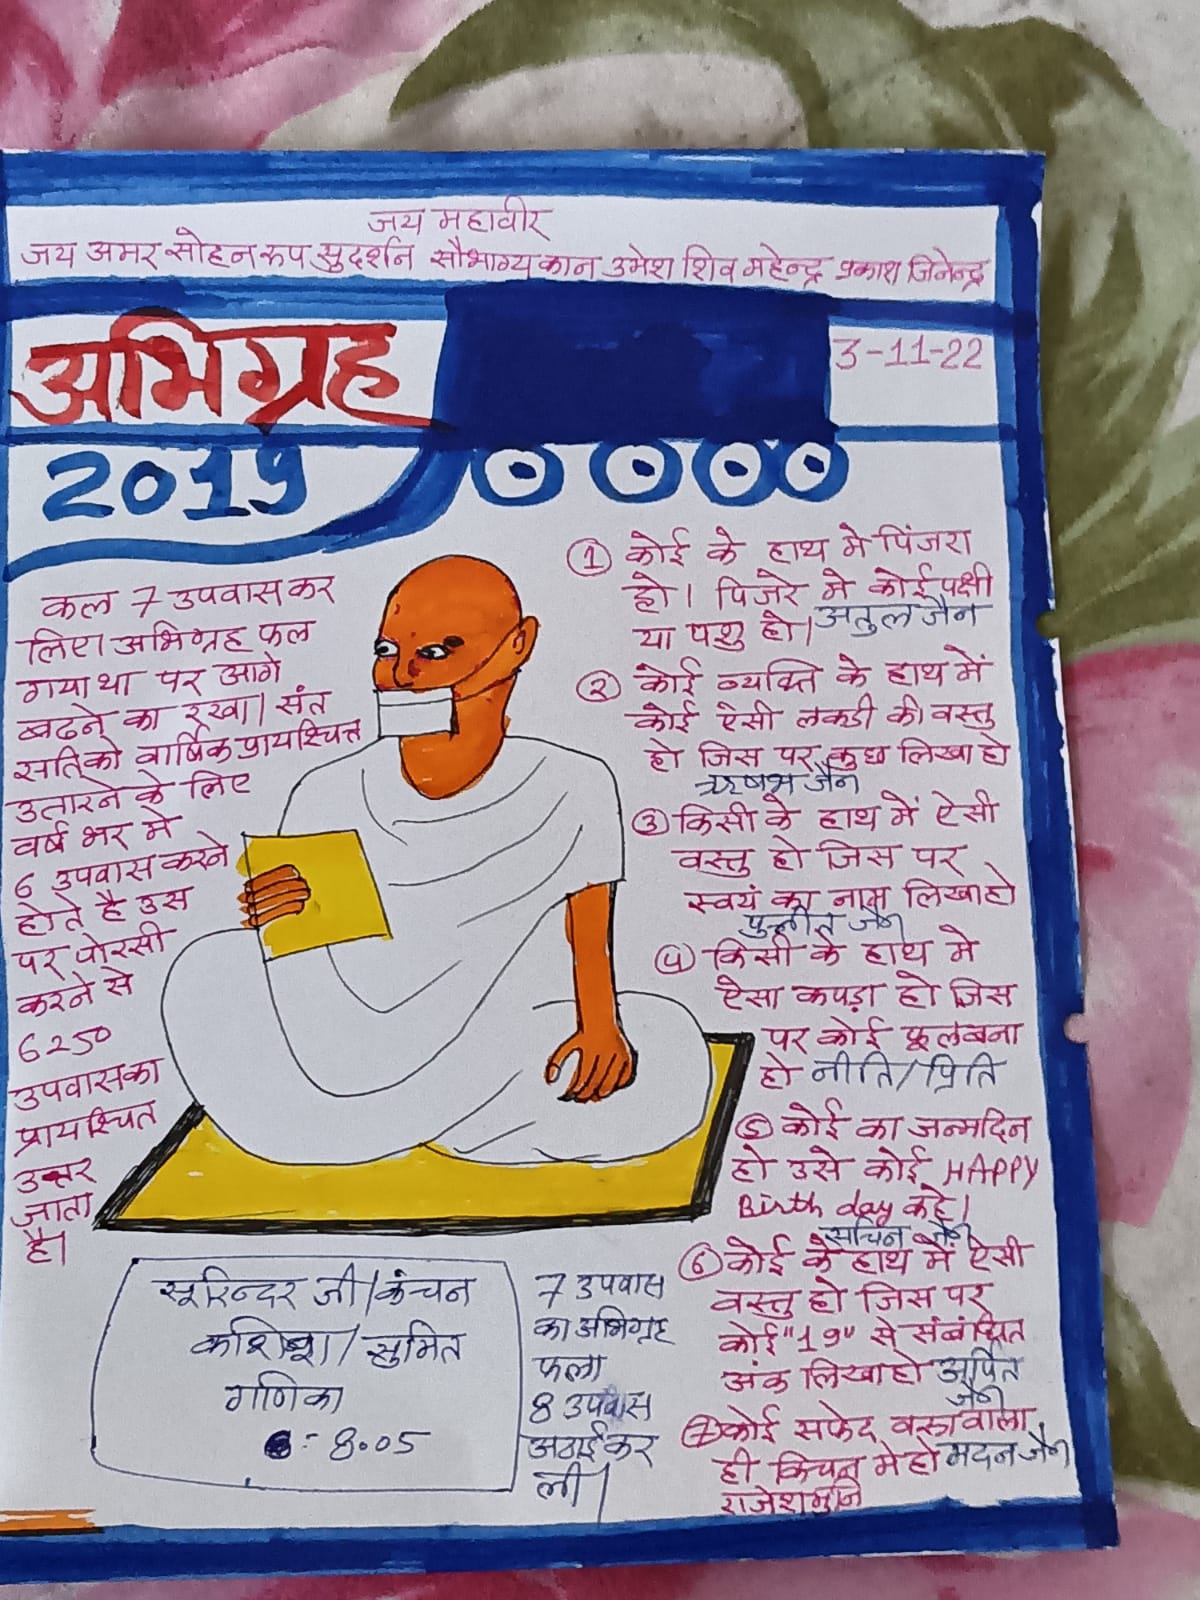 जय महावीर
जय अमर सोहन रुप सुदर्शन सौभाग्य कान उमेश शिव महेन्द्र प्रकाश जिनेन्द्र
अभिग्रह
3-11-22
2019
कल 7 उपवास कर
लिए। अभिग्रह फल
गया था पर आगे
बढने का रखा। संत
सति को वार्षिक प्रायश्चित्त
उतारने के लिए
वर्ष भर मे
6 उपवास करने
होते है उस
पर पोरसी
करने से
6250
उपवास का
प्रायश्चित
उत्तर
जाता
है।
① कोई के हाथ मे पिंजरा
हो। पिजरे मे कोई पक्षी
या पशु हो। अतुल जैन
② कोई व्यक्ति के हाथ में
कोई ऐसी लकडी की वस्तु
हो जिस पर कुछ लिखा हो
ऋषभ जैन
③ किसी के हाथ में ऐसी
वस्तु हो जिस पर
स्वयं का नाम लिखा हो
पुनीत जैन
④ किसी के हाथ मे
ऐसा कपड़ा हो जिस
पर कोई फूल बना
हो नीति/प्रिति
⑤ कोई का जन्मदिन
हो उसे कोई HAPPY
Birth day कहे।
सचिन जैन
⑥ कोई के हाथ में ऐसी
वस्तु हो जिस पर
कोई "19" से संबंधित
अंक लिखा हो अर्पित
जैन
⑦ कोई सफेद वस्त्र वाला
ही किचन मे हो मदन जैन
राजेश मुनि
सूरिन्दर जी/कंचन
कशिश/सुमित
गणिका
8.05
7 उपवास
का अभिग्रह
फला
8 उपवास
अठाई कर
ली।